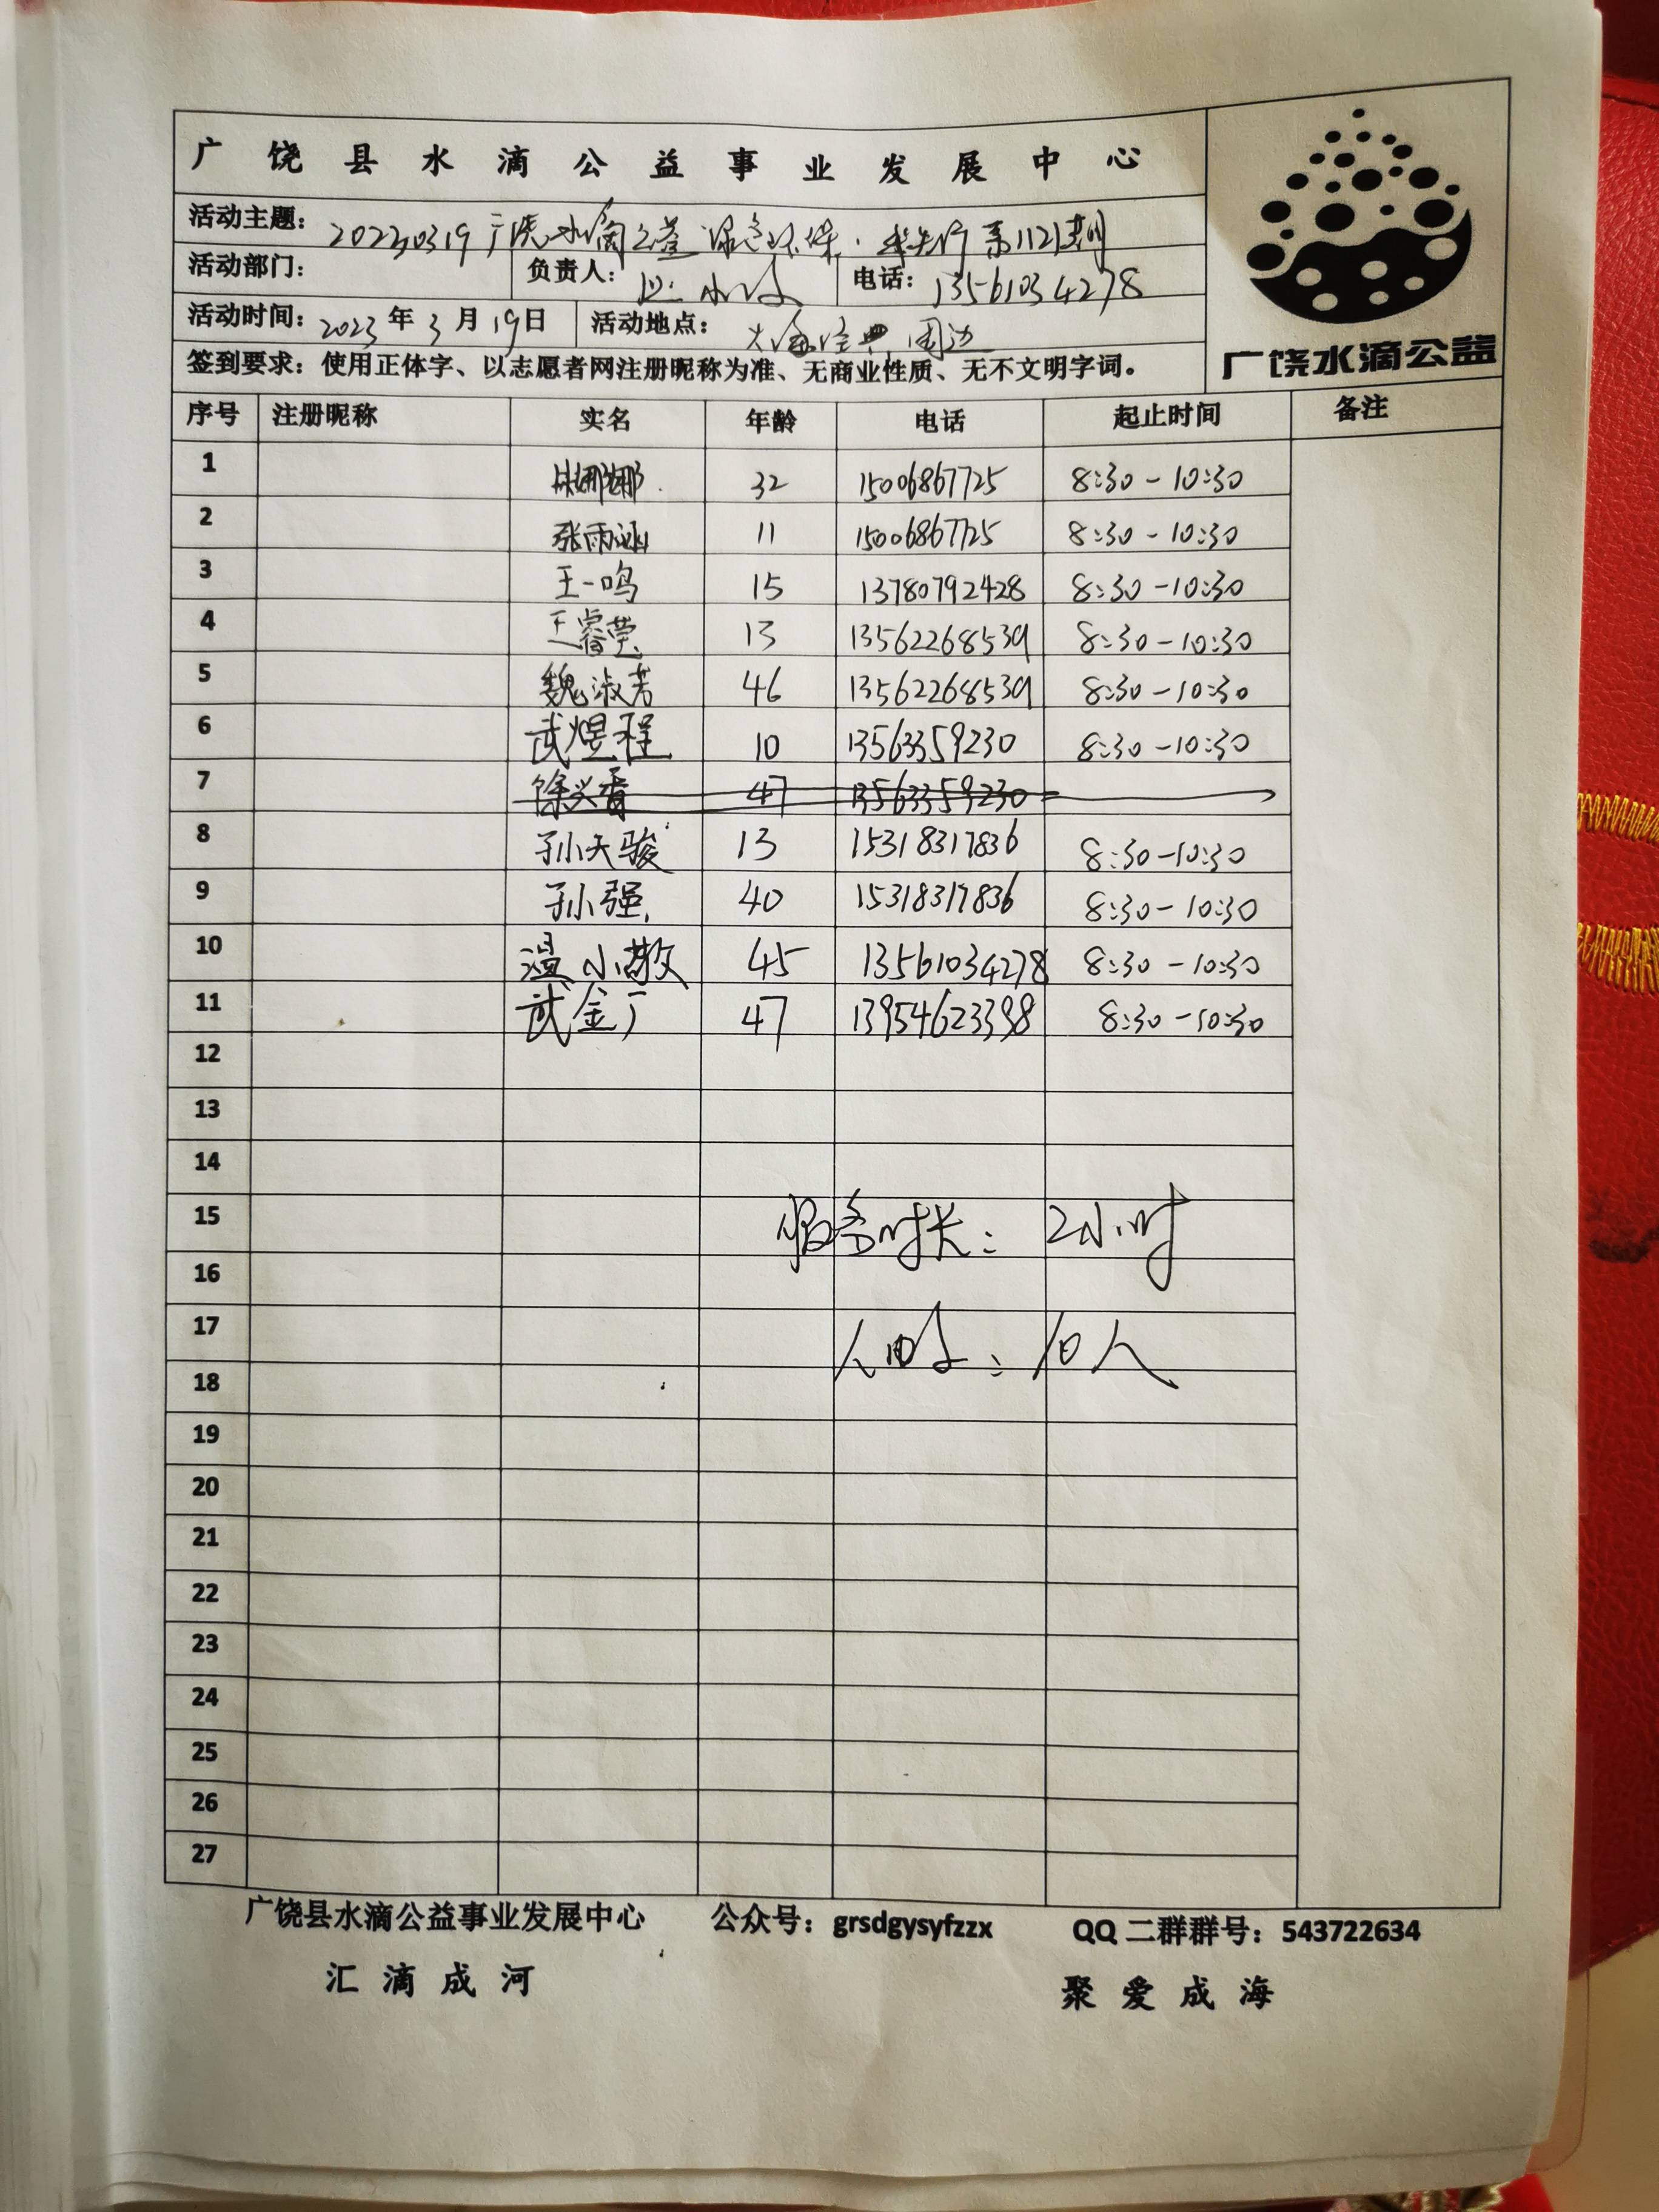 广饶县水滴公益事业发展中心
活动主题： 20230319广饶水滴公益 绿色环保·我先行 第112期
活动部门： 负责人： 电话：13561034278
活动时间：2023年3月19日 活动地点： 周边
签到要求：使用正体字、以志愿者网注册昵称为准、无商业性质、无不文明字词。
广饶水滴公益
序号 注册昵称 实名 年龄 电话 起止时间 备注
1 娜娜 32 15006867725 8:30-10:30
2 张雨涵 11 15006867725 8:30-10:30
3 王一鸣 15 13780792428 8:30-10:30
4 王睿莹 13 13562268539 8:30-10:30
5 魏淑芳 46 13562268539 8:30-10:30
6 武煜程 10 13563359230 8:30-10:30
7 徐兴香 47 13563359230
8 孙天骏 13 15318317836 8:30-10:30
9 孙强 40 15318317836 8:30-10:30
10 温小敬 45 13561034278 8:30-10:30
11 武金广 47 13954623398 8:30-10:30
12
13
14
15 服务时长：2小时
16
17 人数：10人
18
19
20
21
22
23
24
25
26
27
广饶县水滴公益事业发展中心 公众号：grsdgysyfzzx QQ二群群号：543722634
汇滴成河 聚爱成海